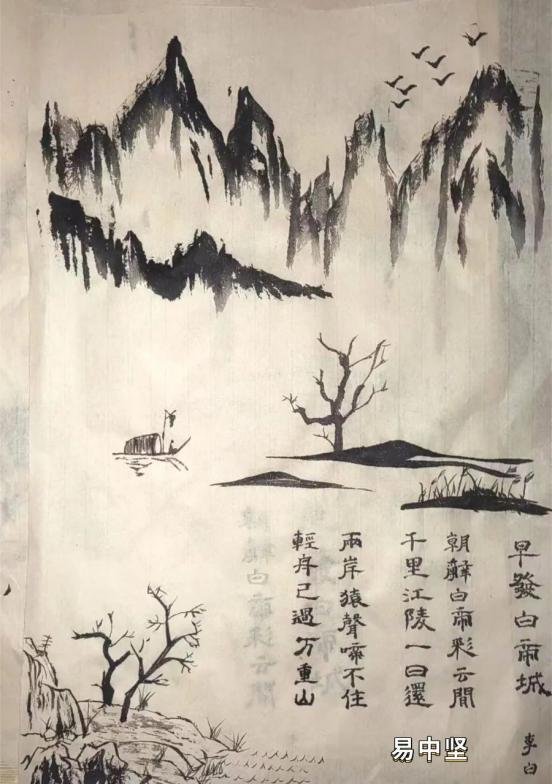 早發白帝城
李白
朝辭白帝彩云間
千里江陵一日還
兩岸猿聲啼不住
輕舟已過万重山
易中坚